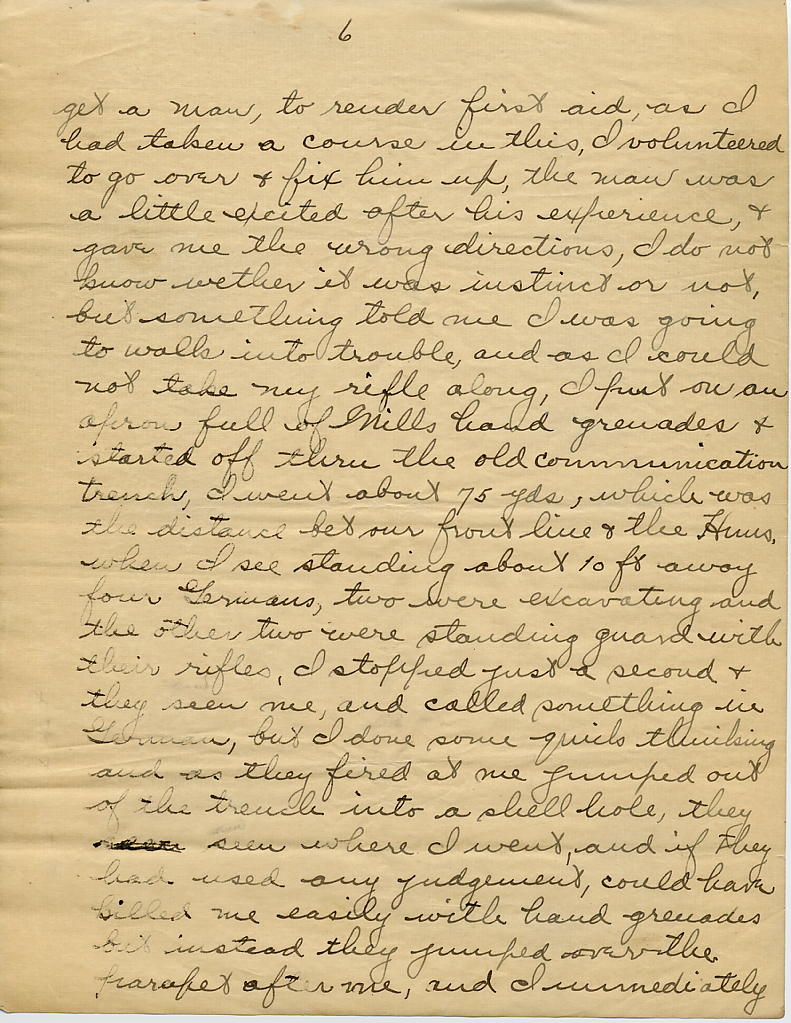 6
get a man, to render first aid, as I
had taken a course in this, I volunteered
to go over & fix him up, the man was
a little excited after his experience, &
gave me the wrong directions, I do not
know wether it was instinct or not,
but something told me I was going
to walk into trouble, and as I could
not take my rifle along, I put on an
apron full of Mills hand grenades &
started off thru the old communication
trench, I went about 75 yds, which was
the distance bet our front line & the Huns,
when I see standing about 10 ft away
four Germans, two were excavating and
the other two were standing guard with
their rifles, I stopped just a second &
they seen me, and called something in
German, but I done some quick thinking
and as they fired at me jumped out
of the trench into a shell hole, they
seen where I went, and if they
had used any judgement, could have
killed me easily with hand grenades
but instead they jumped over the
parapet after me, and I immediately